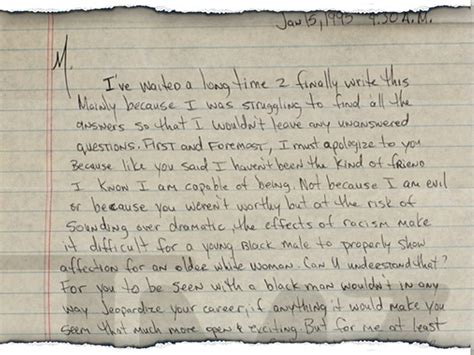 Jan 15, 1995 4:30 A.M.
M.
I've waited a long time 2 finally write this
Mainly because I was struggling to find all the
answers so that I wouldn't leave any unanswered
questions. First and Foremost, I must apologize to you
Because like you said I haven't been the kind of friend
I Know I am capable of being. Not because I am evil
or because you weren't worthy but at the risk of
sounding over dramatic, the effects of racism make
it difficult for a young Black male to properly show
affection for an older white woman Can U understand that?
For you to be seen with a black man wouldn't in any
way Jeopardize your career, if anything it would make you
seem that much more open & exciting But for me at least